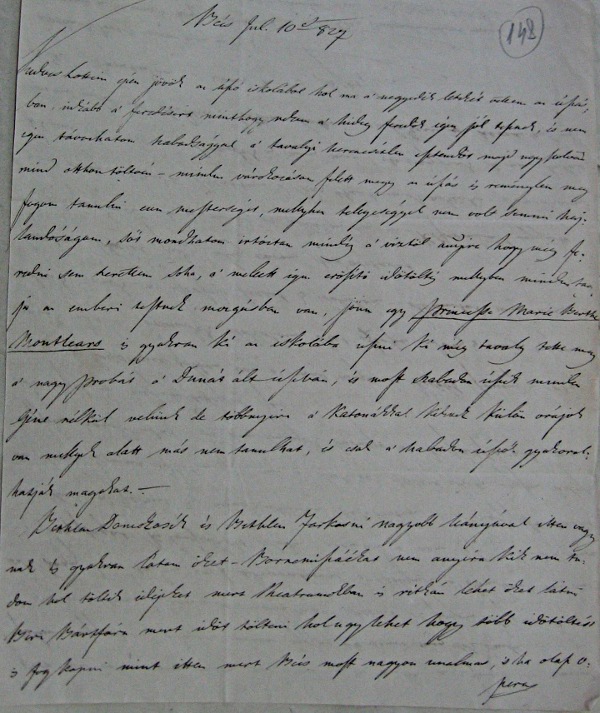 Bécs Jul. 10d 827
148
Kedves Lotim épen jövök az úszó iskolábol hol ma a negyedik letzkét vettem az úszás,
ban, inkább a feredésért minthogy nekem a hideg feredők igen jól tesznek, és nem
igen távozhatom szabadsággal a tavalyi esztendőt majd
mind otthon töltém – minden várakozásom felett megy az úszás és reménylem meg
fogom tanulni ezen mesterséget, mellyhez tellyeséggel nem volt semmi haj,
landóságom, sőt mondhatom irtóztam mindég a víztöl annyira hogy még fe,
redni sem mertem soha, a mellett igen erösitö idötöltés mellyben minden
ja az emberi testnek mozgásban van, jön egy Princesse Marie
Montlears is gyakran ki az iskolába úszni ki még tavaly tette meg
a nagy probát a Dunát ált úszván, és most szabadon úszik minden
Géne nélkül velünk de többnyire a Katonákkal kiknek külön orájok
van mellyek alatt más nem tanulhat, és csak a szabadon úszók gyakorol,
hatják magokat. –
Bethlen Domokosék és Bethlen Farkasné nagyobb leányával itten vagy
nak is gyakran látom őket – Bornemiszáékat nem annyira kik nem tu,
dom hol töltik idejeket mert Theatrumokban is ritkán lehet őket látni
Bártfára ment időt tölteni hol ugy lehet hogy több időtöltést
is fog kapni mint itten mert Bécs most nagyon unalmas, s ha olasz o,
pera